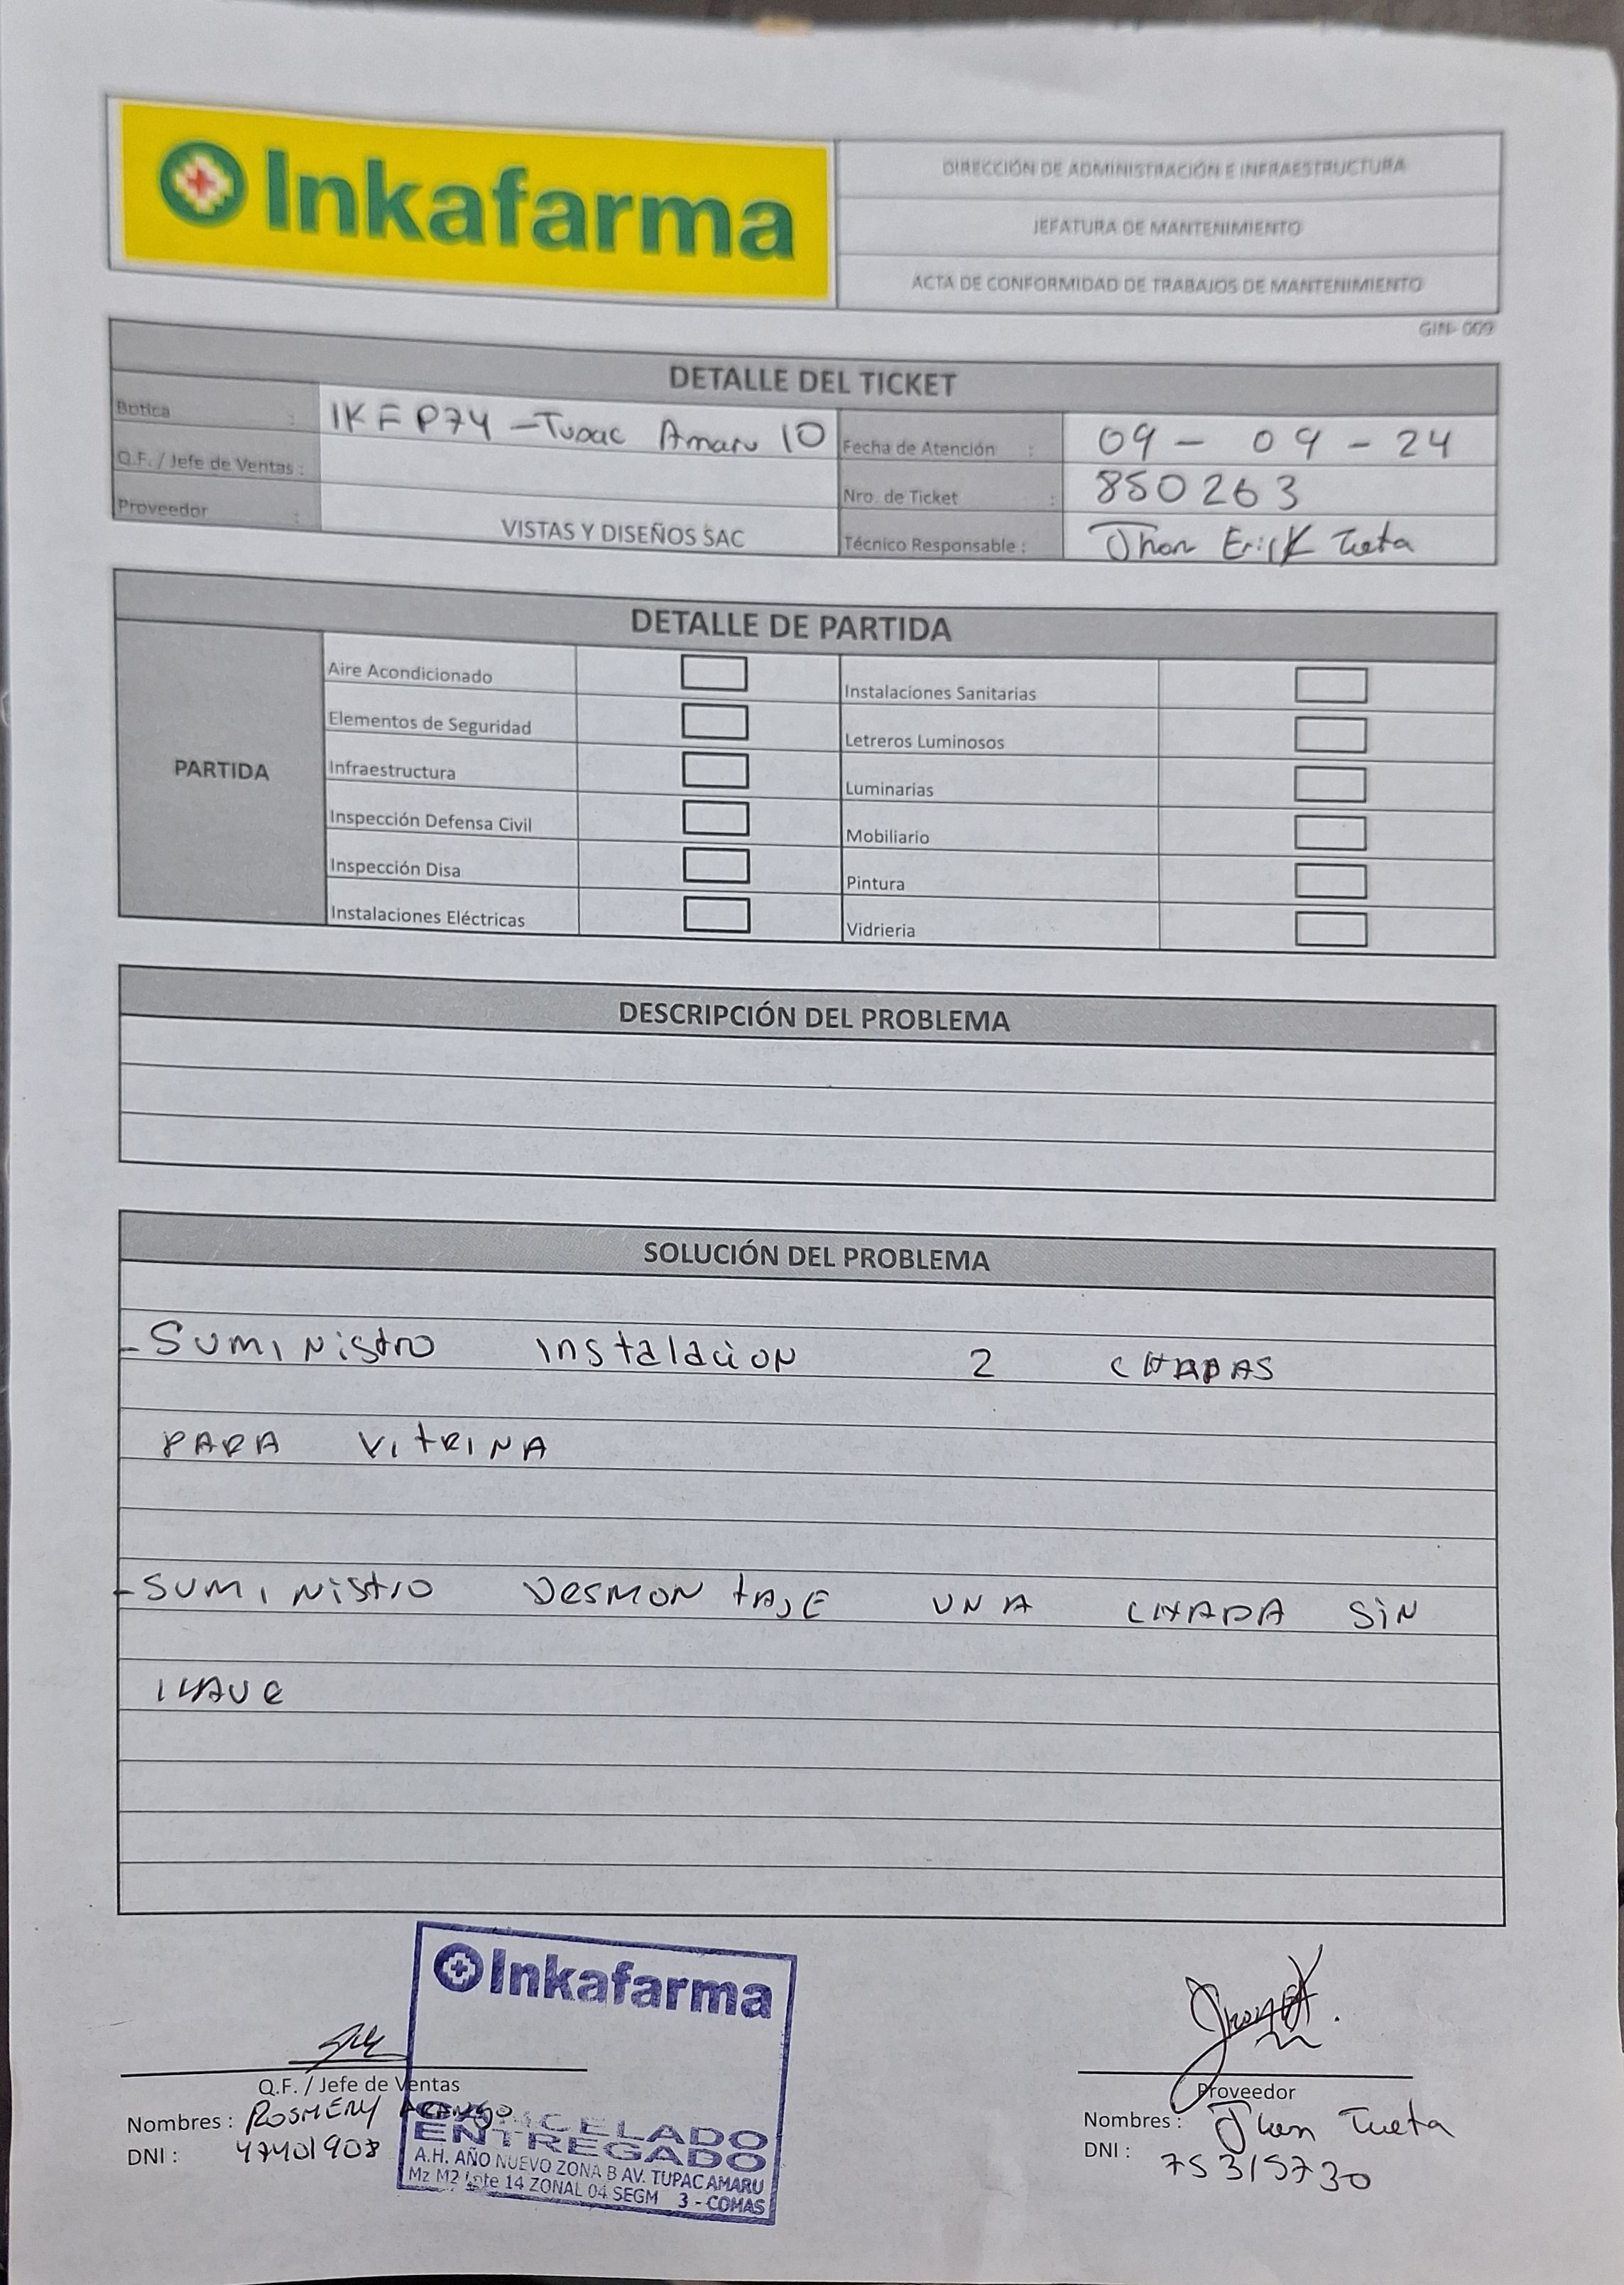 Inkafarma
DIRECCIÓN DE ADMINISTRACIÓN E INFRAESTRUCTURA
JEFATURA DE MANTENIMIENTO
ACTA DE CONFORMIDAD DE TRABAJOS DE MANTENIMIENTO
GIN- 009
DETALLE DEL TICKET
Botica : IKFP74 - Tupac Amaru 10
Fecha de Atención : 09 - 09 - 24
Q.F. / Jefe de Ventas :
Nro. de Ticket : 850263
Proveedor : VISTAS Y DISEÑOS SAC
Técnico Responsable : Jhon Erick
DETALLE DE PARTIDA
PARTIDA
Aire Acondicionado
Instalaciones Sanitarias
Elementos de Seguridad
Letreros Luminosos
Infraestructura
Luminarias
Inspección Defensa Civil
Mobiliario
Inspección Disa
Pintura
Instalaciones Eléctricas
Vidrieria
DESCRIPCIÓN DEL PROBLEMA
SOLUCIÓN DEL PROBLEMA
- SUMINistro instalacion 2 CHAPAS
PARA VitRINA
- SUMINistro DesMONtAJE UNA CHAPA SiN
llAVe
Inkafarma
CANCELADO
ENTREGADO
A.H. AÑO NUEVO ZONA B AV. TUPAC AMARU
Mz M2 Lote 14 ZONAL 04 SEGM 3 - COMAS
Q.F. / Jefe de Ventas
Nombres : ROSMERY
DNI : 47401908
Proveedor
Nombres : Jhon
DNI : 75315730